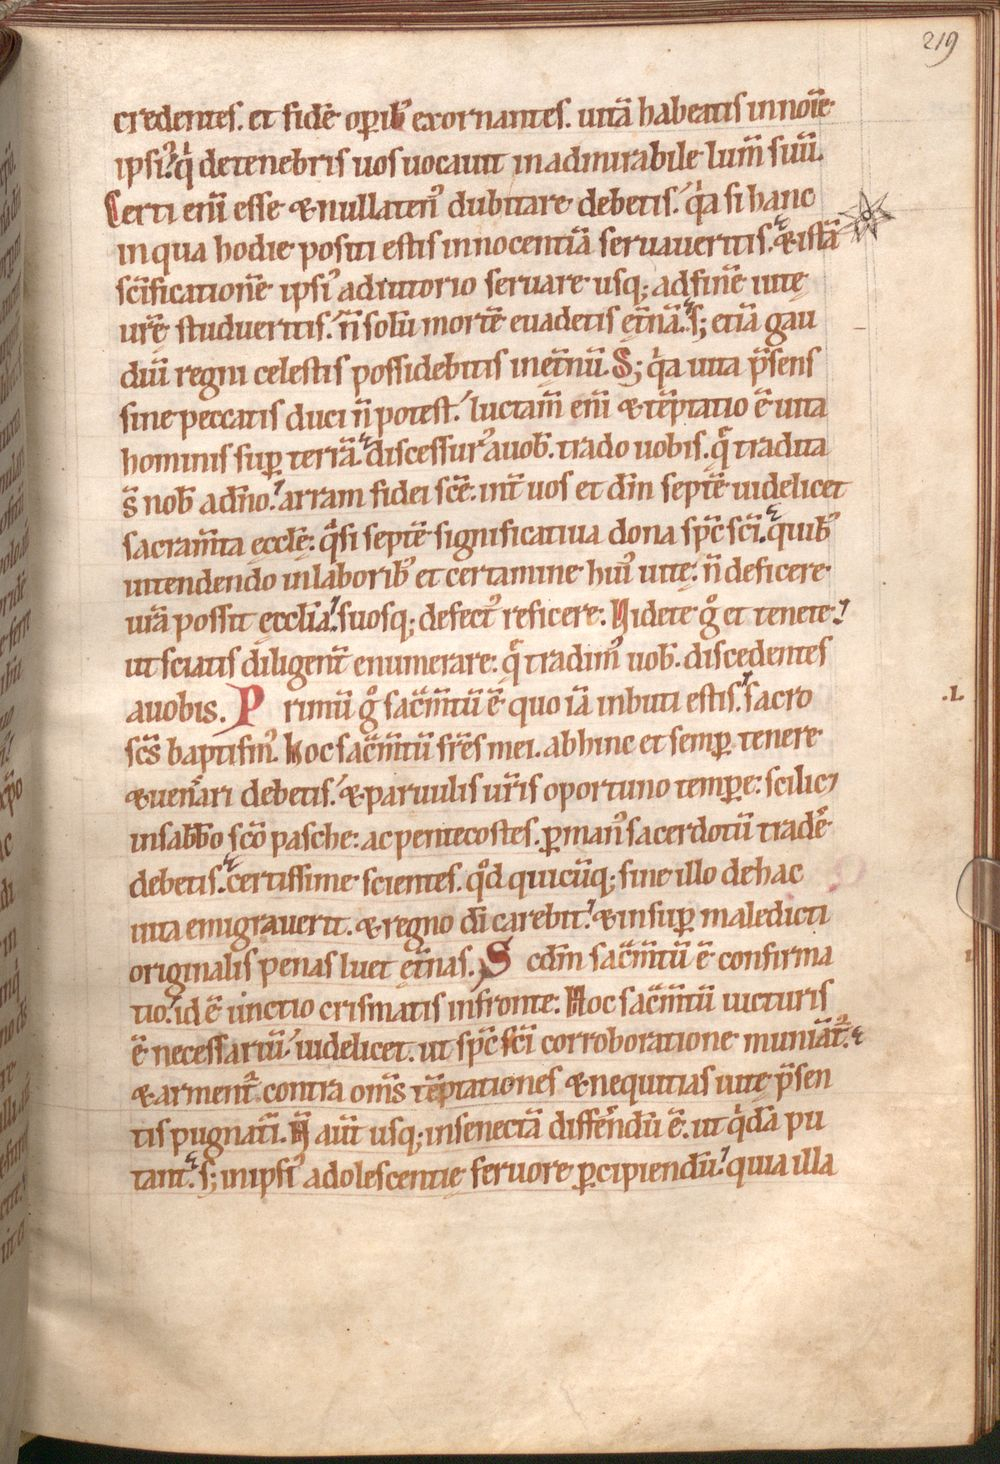 219
credentes. et fidē oꝑib᷒ exornantes. uitā habeatis in noīe
ipsi᷒. q̇ de tenebris uos uocauit in admirabile lum̄ suū.
Certi enī esse & nullaten᷒ dubitare debetis. q̇a si hanc
in qua hodie positi estis innocentiā seruaueritis. & istā
sc̄ificationē ipsi᷒ adiutorio seruare usq; ad finē uitę
ur̄ę studueritis. n̄ solū mortē euadetis et̄nā. s; etiā gau
diū regni celestis possidebitis in et̄nū. S; q̇a uita p̄sens
sine peccatis duci n̄ potest. luctam̄ enī & tēptatio ē uita
hominis suꝑ terrā. discessur᷒ a uob̄. trado uobis. q̄ tradita
s̄ nob̄ a dn̄o. arram fidei scē. int̄ uos et dm̄ septē uidelicet
sacram̄ta ecclē. q̄si septē significatiua dona sp̄c sc̄i. quib᷒
intendendo in laborib᷒ et certamine hui᷒ uitę. n̄ deficere
ur̄a possit ęcclīa. suosq; defect᷒ reficere. Videte g̊ et tenete.
ut sciatis diligent̄ enumerare. q̄ tradim᷒ uob̄. discedentes
a uobis. Primū g̊ sac̄m̄tū ē quo iā inbuti estis. sacro
.L
sc̄s baptism᷒. Hoc sac̄m̄tū fr̄es mei. abhinc et semꝑ tenere
& uen̄ari debetis. & paruulis ur̄is oportuno temꝑe. scilic;
in sabb̄o sc̄o pasche. ac pentecostes. ꝑ man᷒ sacerdotū tradē
debetis. certissime scientes. qd̄ quicūq; sine illo de hac
uita emigrauerit. & regno dī carebit. & insuꝑ maledicti
originalis penas luet et̄nas. Scdm̄ sac̄m̄tū ē confirma
tio. id ē unctio crismatis in fronte. Hoc sac̄m̄tū uicturis
ē necessariū. uidelicet. ut sp̄c sc̄i corroboratione muniāt᷒.
& arment᷒ contra om̄s tēptationes & nequitias uitę p̄sen
tis pugnat̄i. N̄ aut̄ usq; in senectā differ̄endū ē. ut q̇dā pu
tant. s; in ipsi᷒ adolescentię feruore ꝑcipiendū. quia illa